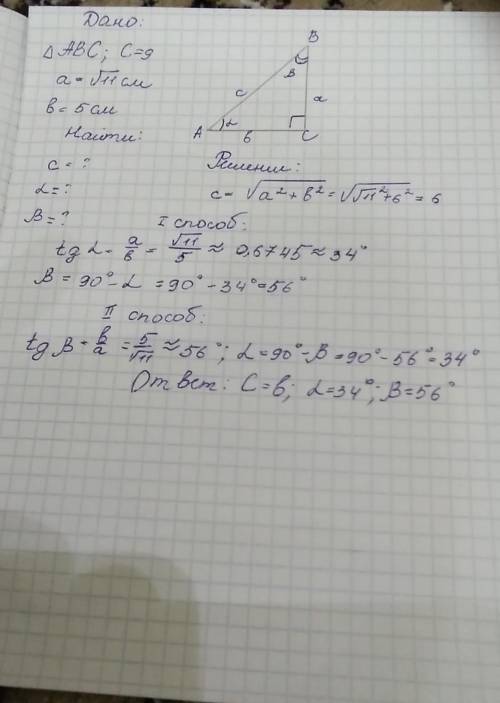 Дано:
△ABC; C=9
a = √11 см
b = 5 см
Найти:
c = ?
α = ?
β = ?
B
β
c
a
A
α
b
C
Решении:
c = √a²+b² = √√11²+6² = 6
I способ:
tg α = a/b = √11/5 ≈ 0,6745 ≈ 34°
β = 90° - α = 90° - 34° = 56°
II способ:
tg β = b/a = 5/√11 ≈ 56°; α = 90° - β = 90° - 56° = 34°
Ответ: C = 6; α = 34°; β = 56°